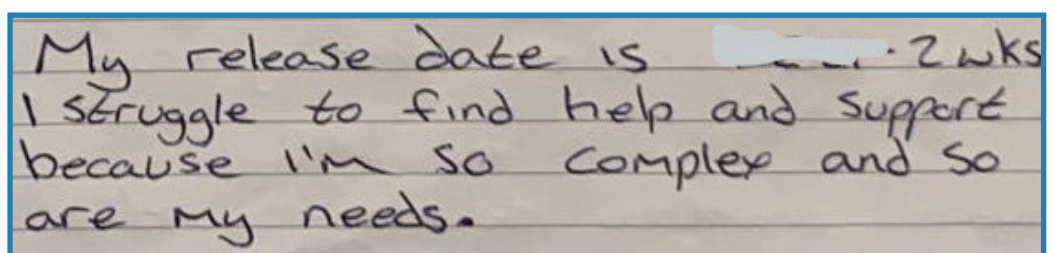 My release date is 2 wks
I struggle to find help and support
because I'm so complex and so
are my needs.